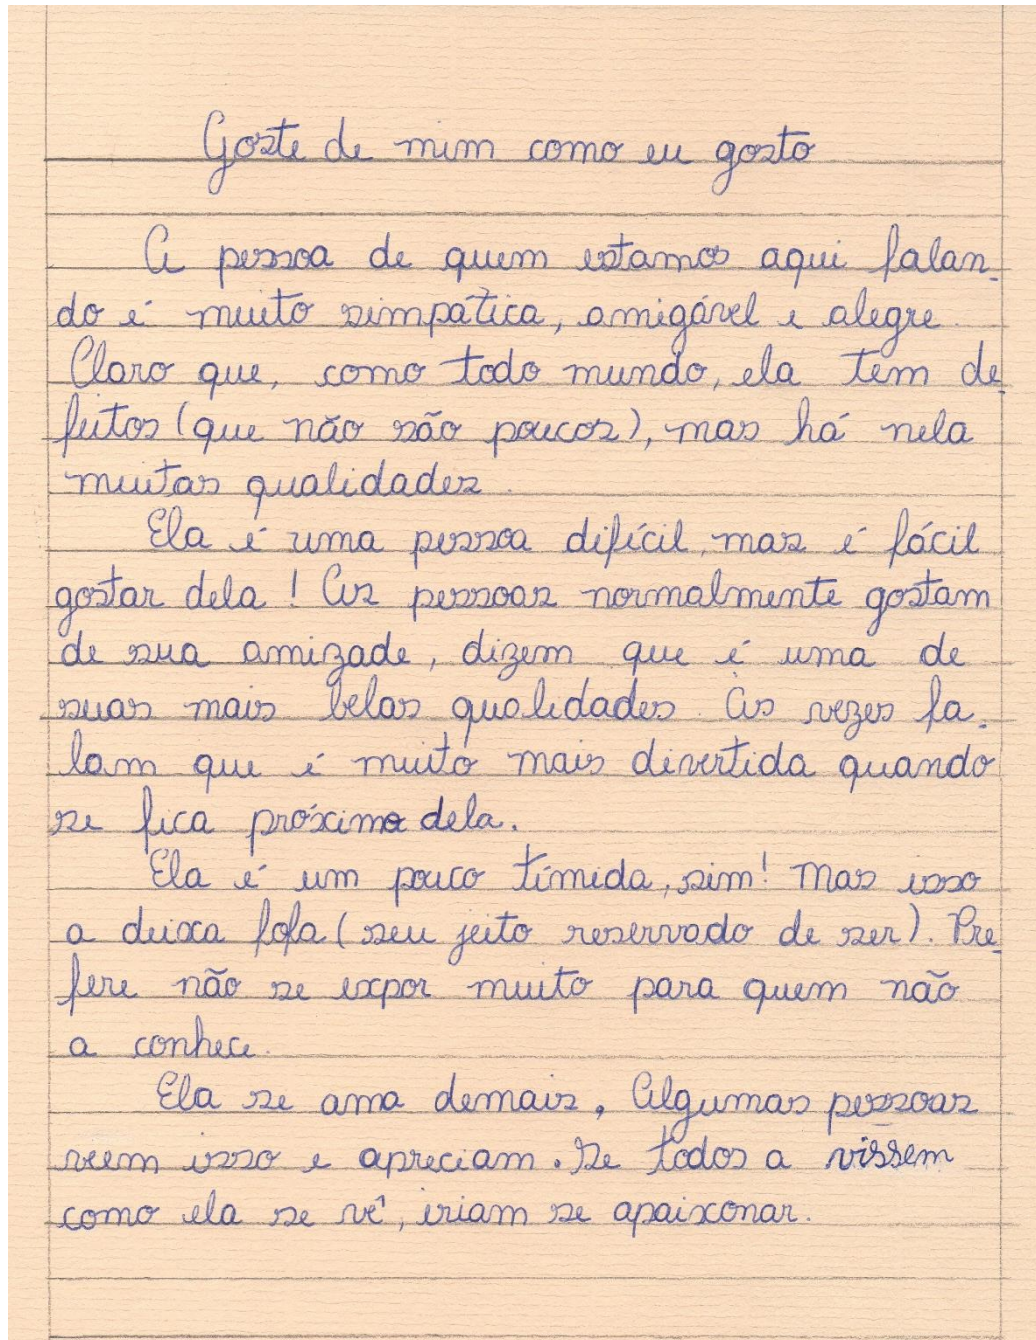 Goste de mim como eu gosto
A pessoa de quem estamos aqui falan-
do é muito simpática, amigável e alegre.
Claro que, como todo mundo, ela tem de-
feitos (que não são poucos), mas há nela
muitas qualidades.
Ela é uma pessoa difícil, mas é fácil
gostar dela! As pessoas normalmente gostam
de sua amizade, dizem que é uma de
suas mais belas qualidades. As vezes fa-
lam que é muito mais divertida quando
se fica próximo dela.
Ela é um pouco tímida, sim! Mas isso
a deixa fofa (seu jeito reservado de ser). Pre-
fere não se expor muito para quem não
a conhece.
Ela se ama demais, Algumas pessoas
veem isso e apreciam. Se todos a vissem
como ela se vê, iriam se apaixonar.